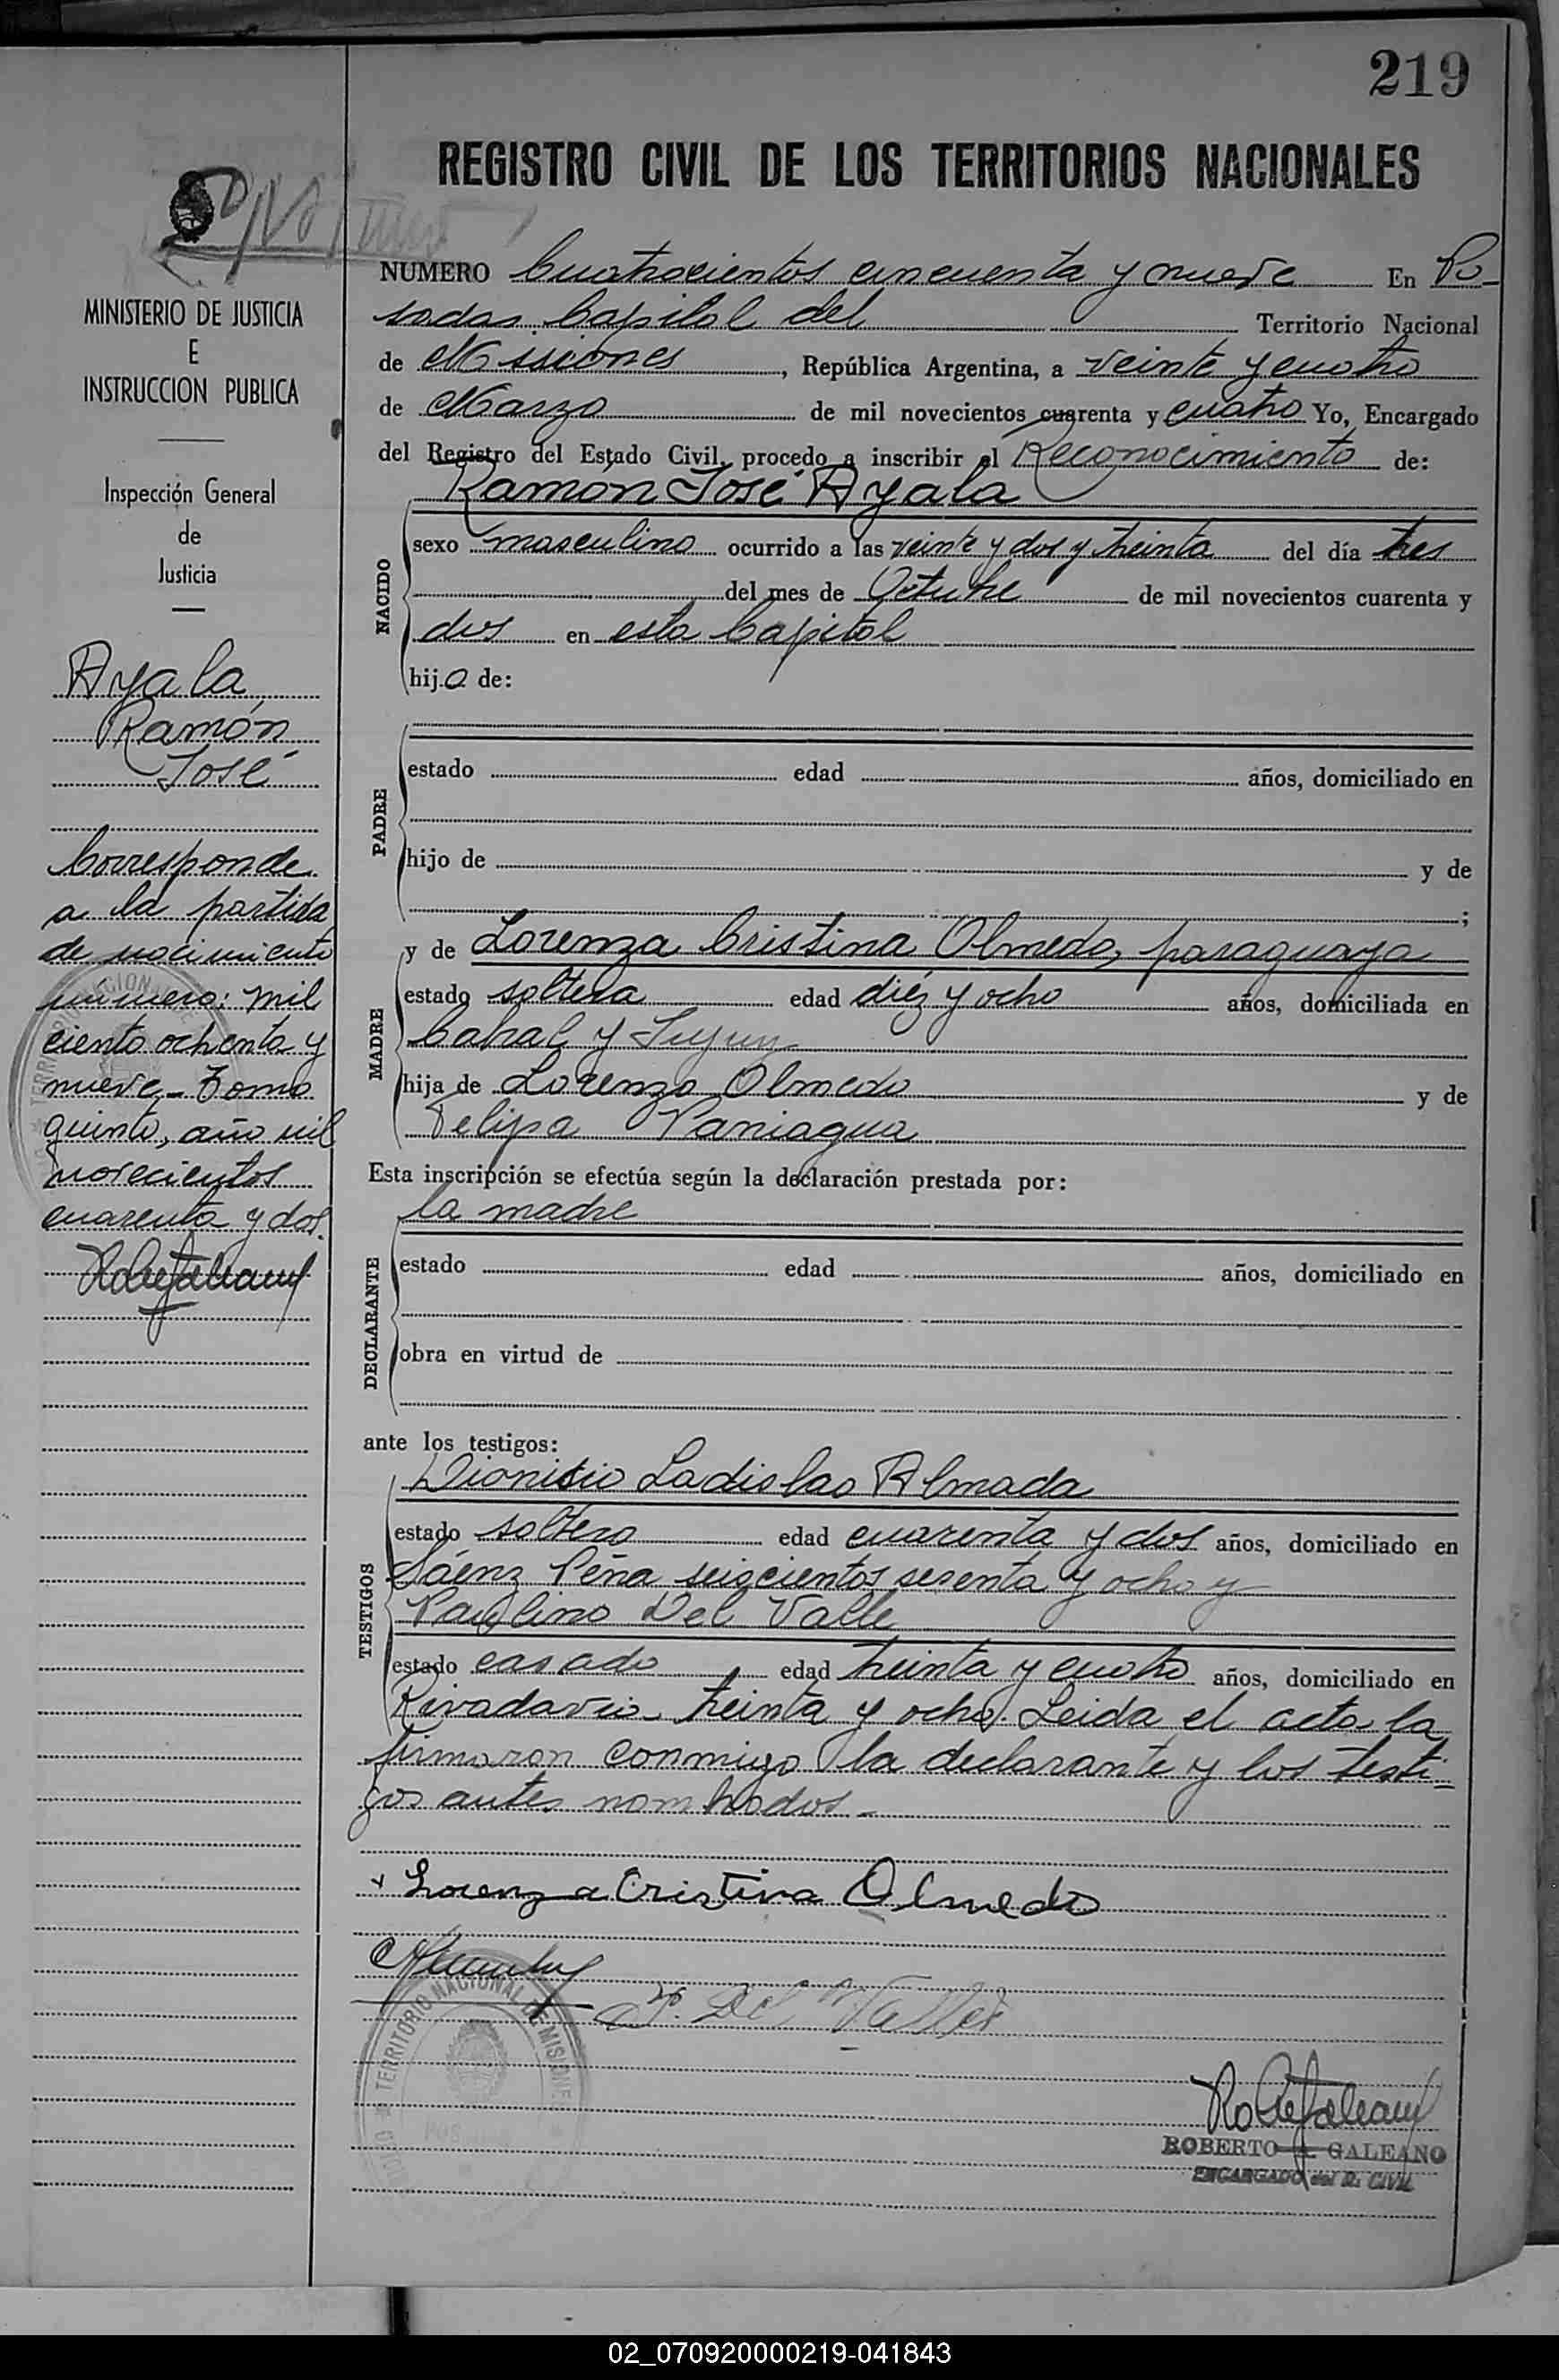 219
REGISTRO CIVIL DE LOS TERRITORIOS NACIONALES
MINISTERIO DE JUSTICIA
E
INSTRUCCION PUBLICA
Inspección General
de
Justicia
Ayala
Ramón
José
Corresponde
a la partida
de nacimiento
número: mil
ciento ochenta y
nueve - Tomo
quinto, año mil
novecientos
cuarenta y dos.
NUMERO Cuatrocientos cincuenta y nueve En Po-
sadas Capital del Territorio Nacional
de Misiones, República Argentina, a veinte y cuatro
de Marzo de mil novecientos cuarenta y cuatro Yo, Encargado
del Registro del Estado Civil, procedo a inscribir el Reconocimiento de:
Ramon José Ayala
NACIDO
sexo masculino ocurrido a las veinte y dos y treinta del día tres
del mes de Octubre de mil novecientos cuarenta y
dos en esta Capital
hijo de:
PADRE
estado edad años, domiciliado en
hijo de y de
;
MADRE
y de Lorenza Cristina Olmedo, paraguaya
estado soltera edad diéz y ocho años, domiciliada en
Cabral y
hija de Lorenzo Olmedo y de
Felipa Paniagua
Esta inscripción se efectúa según la declaración prestada por:
la madre
DECLARANTE
estado edad años, domiciliado en
obra en virtud de
ante los testigos:
TESTIGOS
Dionisio Ladislao Almada
estado soltero edad cuarenta y dos años, domiciliado en
Sáenz Peña seiscientos sesenta y ocho y
Paulino Del Valle
estado casado edad treinta y cuatro años, domiciliado en
Rivadavia treinta y ocho. Leida el acta la
firmaron conmigo la declarante y los testi-
gos antes nombrados -
Lorenza Cristina Olmedo
P. Del Valle
TERRITORIO NACIONAL DE MISIONES
ROBERTO GALEANO
ENCARGADO del R. CIVIL
02_070920000219-041843